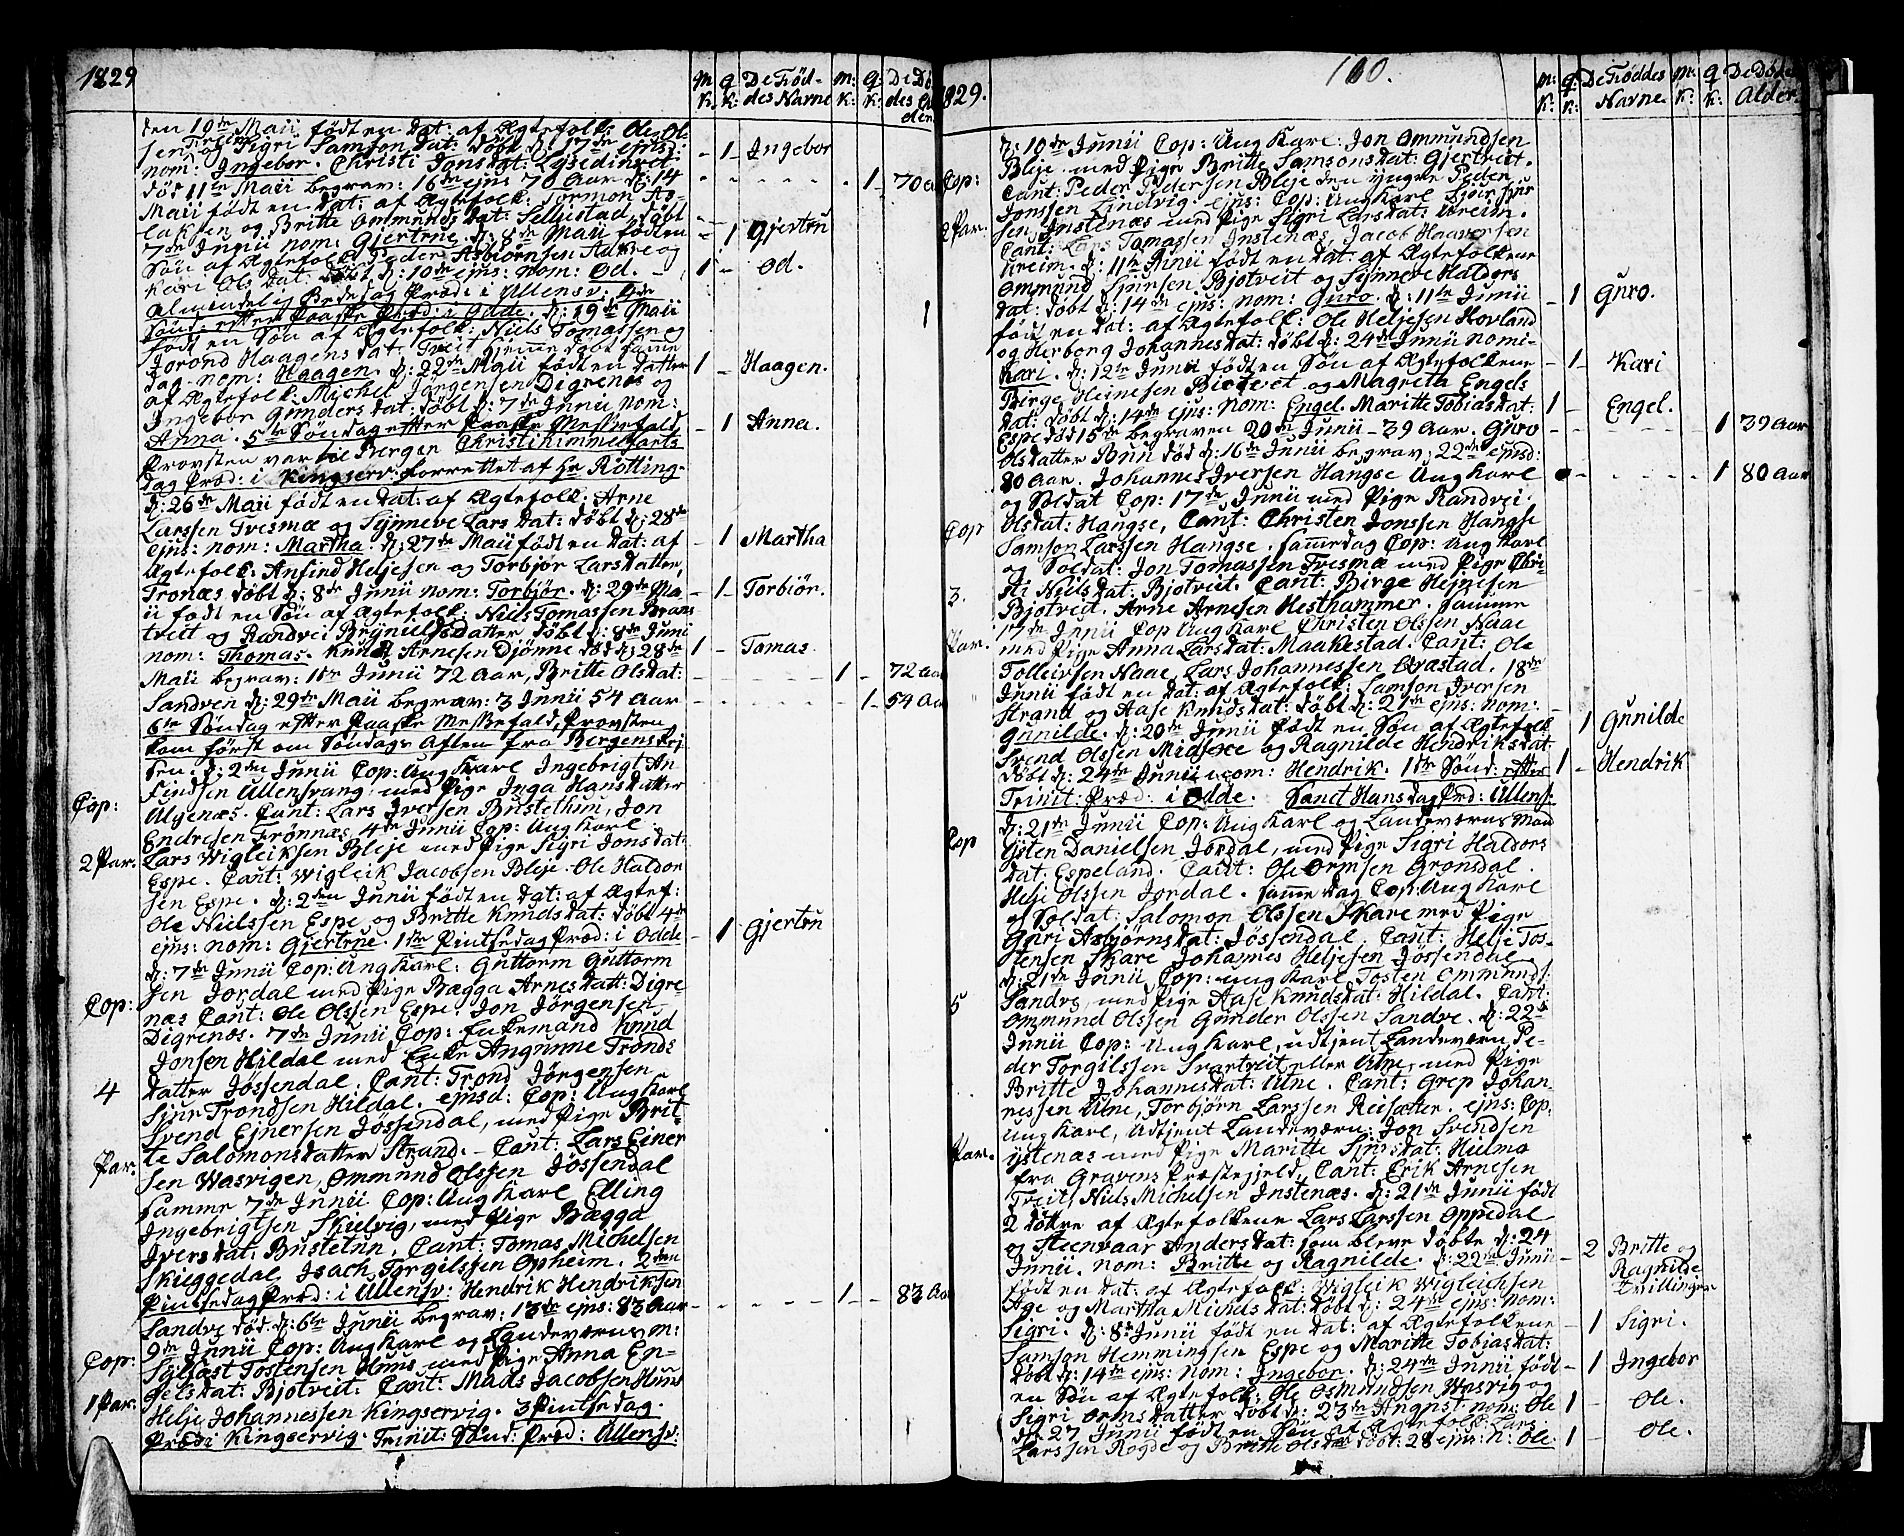 1829
M: K:
Q: K:
De Fød-
des Navne
M: K:
Q: K:
den 19de Maii født en Dat: af Ægtefolk: Ole Ol
sen og Sigri Samson Dat: døbt d: 17de ejus:
nom: Ingebor. Christi Jonsdat: Lysedinveit
død 11te Maii begrav: 16de ejus 70 Aar d: 14
Maii født en Dat: af Ægtefolk: Tormon As-
laksen og Britte Ommunds Dat: Sellestad, døbt
7de Junii nom: Gjertrue. d: 8de Maii født en
Søn af Ægtefolk Peder Asbiørnsen Aakre og
Kari Ols Dat: døbt d: 10de ejus: nom: Od.
Almindelig Bededag Præd: i Ullensv: 4de
Sønd: efter Paaske Præd: i Odde. d: 19de Maii
født en Søn af Ægtefolk: Niels Tomassen og
Jorond Haagens Dat: Treit hjemedøbt samme
dag. nom: Haagen. d: 22de Maii født en datter
af Ægtefolk: Michel Jørgensen Digrenes og
Ingebor Gunders Dat: døbt d: 7de Junii nom:
Anna. 5te Søndag efter Paaske Messefald,
Provsten var til Bergen Christi himmelfarts
dag Præd: i Kingserv: forrettet af Hr Røtting-
d: 26de Maii født en Dat: af Ægtefolk: Arne
Larssen Tresmæ og Synneve Lars Dat: døbt d: 28de
ejus: nom: Martha. d: 27de Maii født en Dat: af
Ægtefolk: Anfind Heljesen og Torbjør Larsdatter,
Tronæs døbt d: 8de Junii nom: Torbjør. d: 29de Ma-
ii født en Søn af Ægtefolk: Niels Tomassen Brans
tveit og Randvei Brynielsdatter døbt d: 8de Juni
nom: Thomas. Knud Arnesen Djønne død d: 28de
Maii begrav: 11te Junii 72 Aar, Britte Olsdat:
Sandven d: 29de Maii begrav: 3 Junii 54 Aar
6te Søndag efter Paaske Messefald, Provsten
kom først om Søndags Aften fra Bergens Rej
sen: d: 2den Junii Cop: Ung Karl Ingebrigt An
findsen Ullensvang med Pige Inga Hansdatter
Alsenæs. Caut: Lars Iversen Bustethun, Jon
Endresen Trønnæs, 4de Junii Cop: Ung Karl
Lars Wigleiksen Bleje med Pige Sigri Jonsdat:
Espe. Caut: Wigleik Jacobsen Bleje. Ole Haldor
sen Espe. d: 2den Junii født en Dat: af Ægtef:
Ole Nielssen Espe og Britte Knudsdat: døbt 4de
ejus: nom: Gjertrue. 1ste Pintsedag Præd: i Odde
d: 7de Junii Cop: Ung Karl: Guttorm Guttorm
sen Jordal med Pige Bægga Arnesdatt: Digre-
næs Caut: Ole Olssen Espe. Jon Jørgensen
Digrenæs. 7de Junii Cop: Enkemand Knud
Jonsen Hildal med Enke Angunne Tronds
datter Jøssendal. Caut: Trond Jørgensen
Sjur Trondsen Hildal. ejusd: Cop: Ung Karl
Svend Ejnersen Jøssendal, med Pige Brit-
te Salomonsdatter Strand. Caut: Lars Einer
sen Wasvigen, Ommund Olssen Jøssendal
samme 7de Junii Cop: Ung Karl Elling
Ingebrigtsen Skielvig, med Pige Bægga
Iversdat: Bustetun, Caut: Tomas Michelsen
Skieggedal, Isach Torgilssen Opheim. 2den
Pintsedag Præd: i Ullensv: Hendrik Hendriksen
Sandve død. d: 6te Junii begrav: 13de ejus: 83 Aar
9de Junii Cop: Ung Karl og Landeværns m:
Sylfæst Tostensen Huus med Pige Anna En-
gelsdat: Bjotveit: Caut: Mads Jacobsen Huus
Helje Johannessen Kingservig. 3 Pintsedag.
Præd: i Kingservig. Trinit: Sønd: Præd: Ullensv:
Cop:
2 Par.
Cop:
4
Par.
Cop:
1 Par.
1 Ingebor
1 70 Aa
1 Gjertru
1 Od.
1
1 Haagen.
1 Anna.
1 Martha
1 Torbiør.
1 Tomas
1 72 Aa
1 54 Aa
1 Gjertru
1 83 Aa
829.
160.
M: K:
Q: K:
De Føddes
Navne.
M: K:
Q: K:
De Dødes
Alder.
d: 10de Junii Cop: Ung Karl: Jon Ommundsen
Bleje med Pige Britte Samsonsdat: Gjertveit.
Caut: Peder Pedersen Bleje den yngre Peder
Jonssen Lindvig. ejus: Cop: Ung Karl Sjur Sjur
sen Instenæs med Pige Sigri Larsdat: Kreim.
Caut: Lars Tomassen Instenæs, Jacob Haaversen
Kreim. d: 11te Junii født en Dat: af Ægtefolkene
Ommund Sjursen Bjotveit og Synneve Haldors
dat: døbt d: 14de ejus: nom: Guro. d: 11te Junii
født en Dat: af Ægtefolk: Ole Heljesen Hovland
og Herborg Johannesdat: døbt d: 24de Junii nomi-
Kari. d: 12te Junii født en Søn af Ægtefolkene
Birge Heinesen Bjotveit og Magreta Engels
dat: døbt d: 14de ejus: nom: Engel. Maritte Tobiasdat:
Espe død 15de begraven 20de Junii - 39 Aar. Guro
Olsdatter Buu død d: 16de Junii begrav: 22de ejusd:
80 Aar. Johannes Iversen Haugse Ung Karl
og Soldat Cop: 17de Junii med Pige Randvei
Olsdat: Haugse, Caut: Christen Jonssen Haugse
Samson Larssen Haugse. samme dag Cop: Ung Karl
og Soldat: Jon Tomassen Tresmæ med Pige Chri-
sti Nielsdat: Bjotveit. Caut: Birge Hejnesen
Bjotveit. Arne Arnesen Hesthammer. samme
17de Junii Cop Ung Karl Christen Olssen Naae
med Pige Anna Larsdat: Maakestad. Caut: Ole
Tolleivsen Naae, Lars Johannessen Qvastad. 18de
Junii født en Dat: af Ægtefolk: Samson Iversen
Strand og Aase Knudsdat: døbt d: 21de ejus: nom:
Gunilde. d: 20de Junii født en Søn af Ægtefolk
Svend Olssen Midsæe og Ragnilde Hendriksdat:
døbt d: 24de Junii nom: Hendrik. 1ste Sønd: efter
Trinit: Præd: i Odde. Sanct Hansdag Præd: Ullens:
d: 21de Junii Cop: Ung Karl og Landeværns Mand
Gjsten Danielsen Jordal, med Pige Sigri Haldors
dat: Espeland. Caut: Ole Ormsen Grøndal
Helje Olssen Jordal. samme dag Cop: Ung Karl
og Soldat: Salomon Olssen Skare med Pige
Guri Asbjørnsdat: Jøssendal, Caut: Helje Tos-
tensen Skare Johannes Heljesen Jøssendal
d: 21de Junii Cop: Ung Karl Tosten Ommunds:
Sandve, med Pige Aase Knudsdat: Hildal. Caut:
Ommund Olssen Gunder Olssen Sandve. d: 22de
Junii Cop: Ung Karl, udtjent Landeværn Pe-
der Torgilssen Svartveit eller Utne, med Pige
Britte Johannesdat: Utne. Caut: Grep Johan-
nessen Utne, Torbjørn Larssen Reisæter. ejus: Cop:
Ung Karl, Udtjent Landeværn: Jon Svendsen
Ystenæs med Pige Maritte Sjursdat: Helmo
fra Gravens Præstegjeld, Caut: Erik Arnesen
Treit, Niels Michelsen Instenæs. d: 21de Junii født
2 døttre af Ægtefolkene Lars Larssen Oppedal
og Steenvaar Andersdat: som bleve døbte d: 24
Junii. nom: Britte og Ragnilde. d: 22de Junii
født en Dat: af Ægtefolk: Wigleik Wigleichsen
Age og Martha Michelsdat: døbt d: 24de ejus: nom:
Sigri. d: 8de Junii født en Dat: af Ægtefolkene
Samson Hemmingsen Espe og Maritte Tobiasdat:
døbt d: 14de ejus: nom: Ingebor. d: 24de Junii født
en Søn af Ægtefolk: Ole Osmundsen Wasvig og
Sigri Ormsdatter døbt d: 23de August nom: Ole
d: 27 Junii født en Søn af Ægtefolk: Lars
Larssen Rogde og Britte Olsdat døbt: 28 ejus: n: Ole:
Cop:
2 Par.
Cop
3.
Par.
Cop
5
Par.
1 Guro.
1 Kari
1 Engel.
1 39 Aar
1 80 Aar
1 Gunilde
1 Hendrik
2 Britte og
Ragnilde
tvillinger
1 Sigri.
1 Ingebor
1 Ole.
1 Ole.